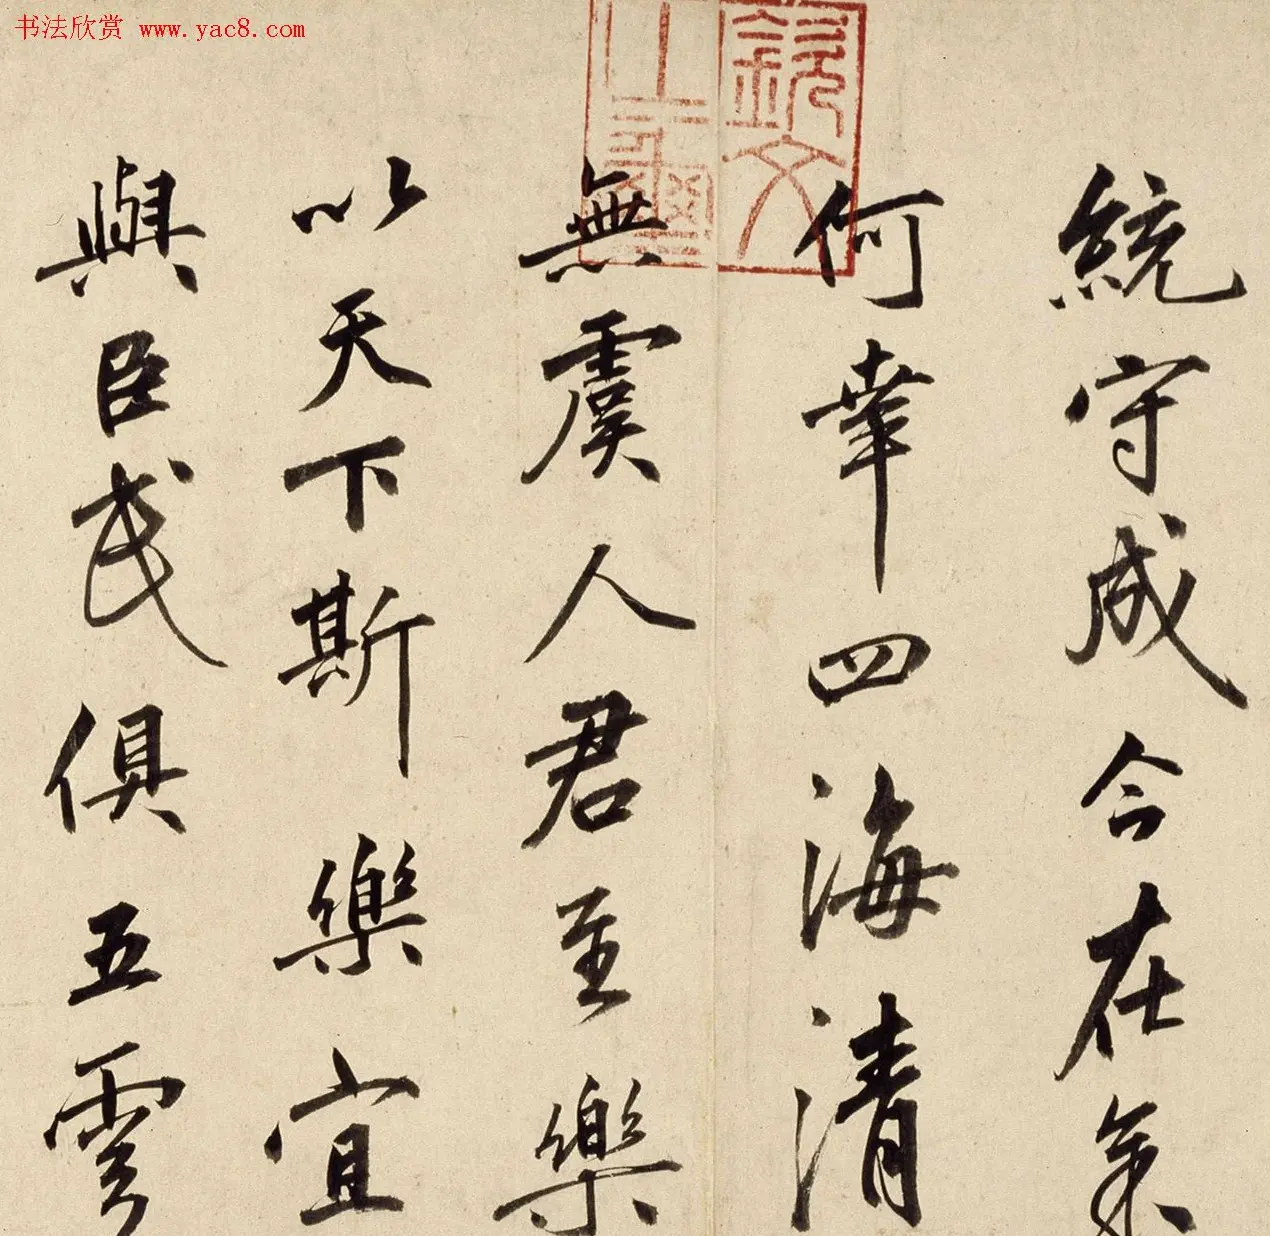 书法欣赏 www.yac8.com
統守成今在余
何幸四海清
無虞人君至樂
以天下斯樂宜
與臣民俱五雲